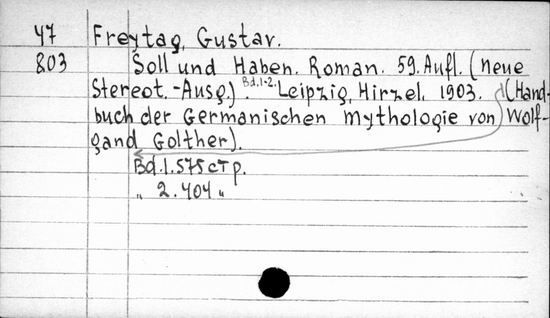 47 Freytag, Gustav.
803 Soll und Haben. Roman. 59. Aufl. (neue
Stereot.-Ausg.). Bd. 1-2. Leipzig, Hirzel, 1903. (Hand-
buch der Germanischen Mythologie von Wolf-
gand Golther).
Bd. 1. 575 стр.
„ 2. 404 „